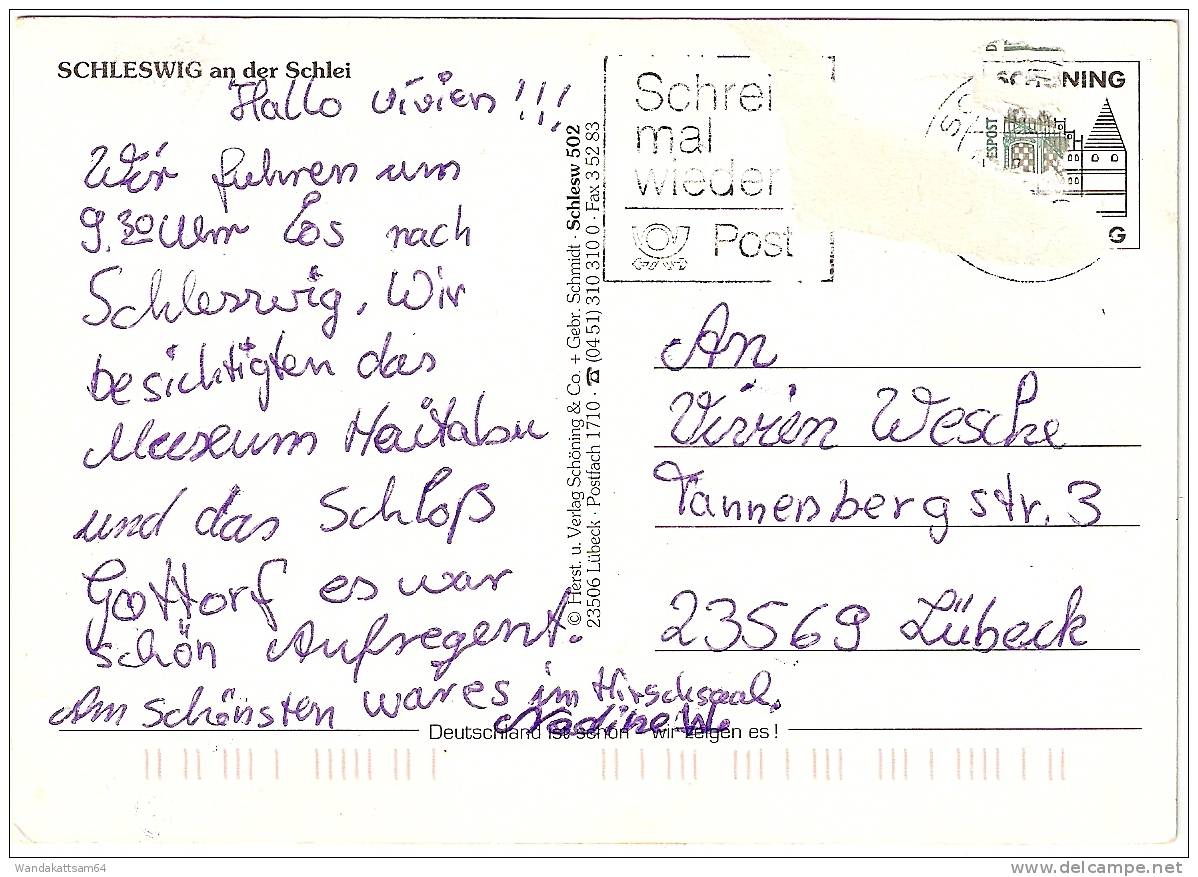 SCHLESWIG an der Schlei
Hallo Vivien!!!
Wir fuhren um
9.30 Uhr los nach
Schleswig. Wir
besichtigten das
Museum Haitabu
und das Schloß
Gottorf es war
schön Aufregent.
Am schönsten war es im Hirschsaal.
Nadine W.
Deutschland ist schön - wir zeigen es!
© Herst. u. Verlag Schöning & Co. + Gebr. Schmidt · Schlesw 502
23506 Lübeck · Postfach 1710 · ☎ (04 51) 310 310 0 · Fax 3 52 83
Schrei
mal
wieder
Post
SCHÖNING
ESPOST
G
An
Vivien Wesche
Tannenbergstr. 3
23569 Lübeck
Wandakattsam64
delcampe.net